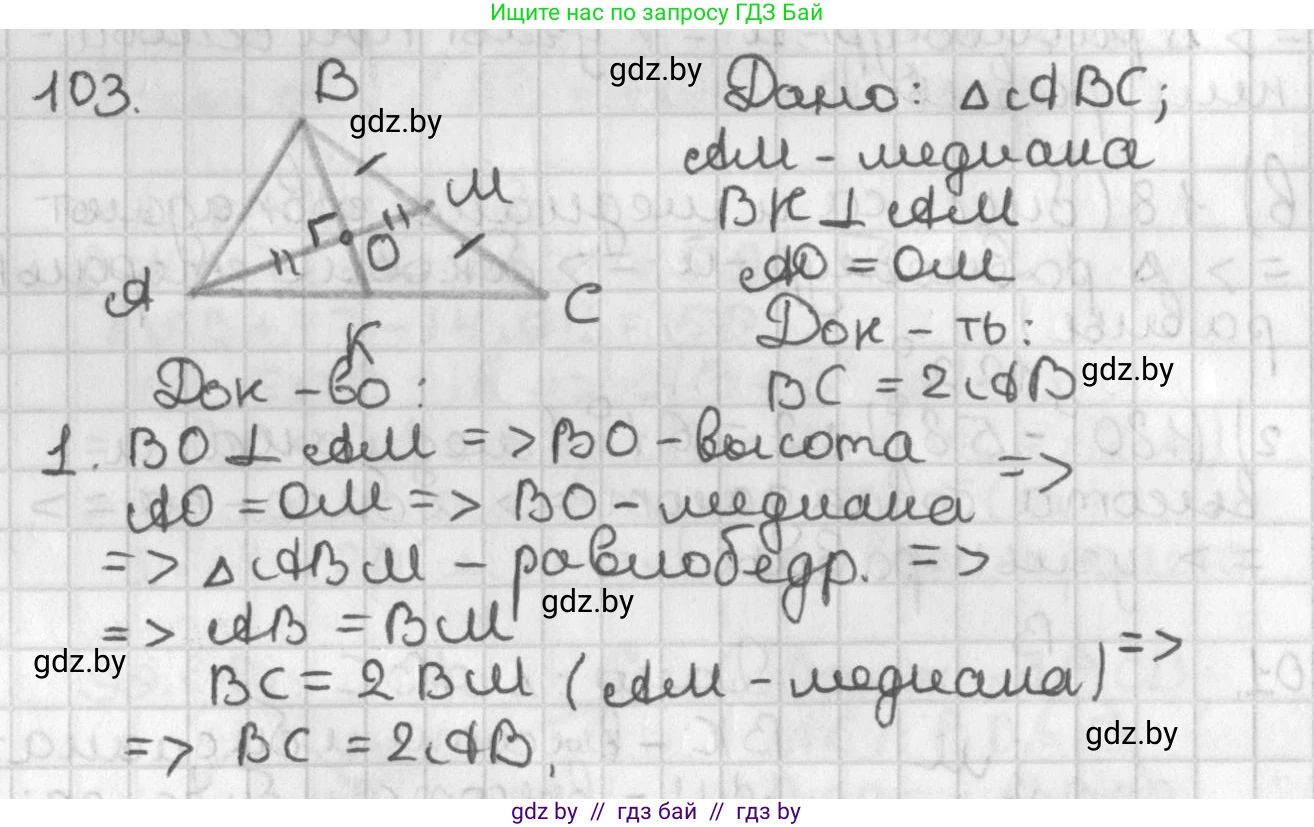 Ищите нас по запросу ГДЗ Бай
103.
B
gdz.by
M
O
A
C
K
gdz.by
Дано: △ABC;
AM - медиана
BK ⊥ AM
AO = OM
Док-ть:
BC = 2AB
gdz.by
Док-во:
1. BO ⊥ AM => BO - высота
AO = OM => BO - медиана =>
=> △ABM - равнобедр. =>
gdz.by
=> AB = BM
gdz.by
BC = 2 BM (AM - медиана) =>
gdz.by
=> BC = 2AB.
gdz.by // гдз бай // гдз by